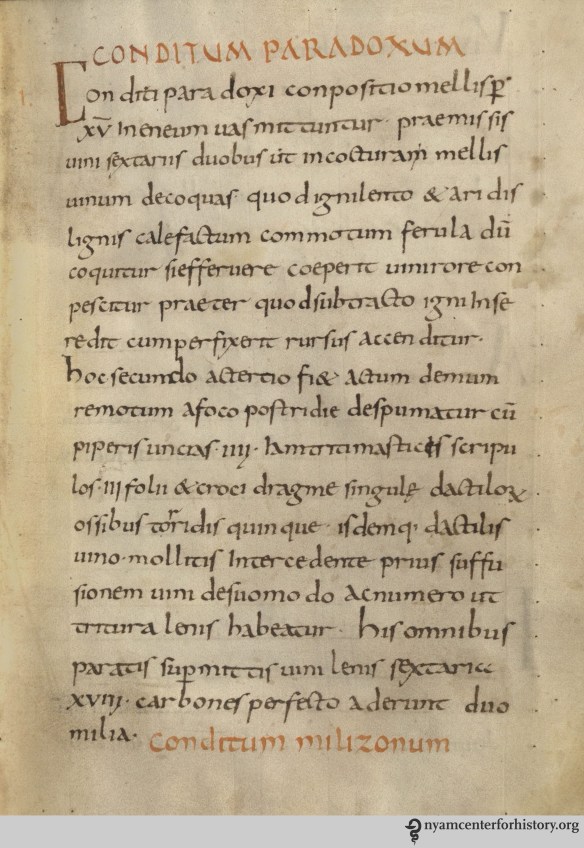 CONDITUM PARADOXUM
Conditi paradoxi conpositio mellis p̄
xv̄ Ineneum uas mittuntur · praemissis
uini sextariis duobus ut incocturam mellis
uinum decoquas quod igni lento & aridis
lignis calefactum commotum ferula dū
coquitur si efferuere coeperit uini rore con
pescitur praeter quod subtracto igni Inse
redit cum perfixerit rursus accenditur ·
hoc secundo ac tertio fi& actum demum
remotum afoco postridie despumatur cū
piperis uncias · iiii · Iam triti masticis scripu
los · III folii & croci dragme singulę dactiloꝝ
ossibus torridis quinque · isdemq· dactilis
uino · mollitis Intercedente prius suffu
sionem uini desuo modo ac numero ut
tritura lenis habeatur · his omnibus
paratis supmittis uini lenis sextaria
xviii · carbones perfecto aderunt duo
milia · Conditum milizonum
nyamcenterforhistory.org